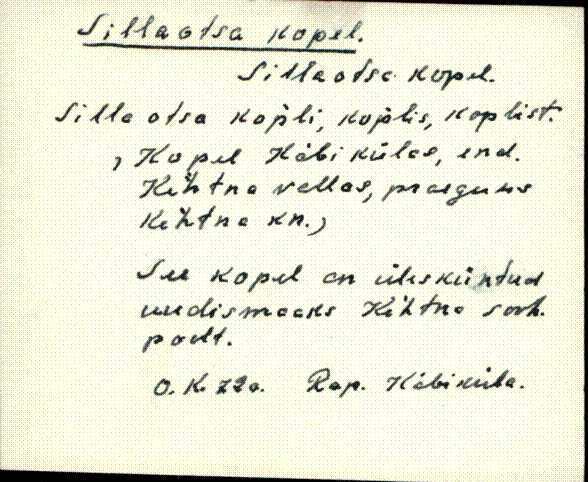 Sillaotsa kopel.
Sillaotsa kopel.
Silla otsa kopli, koplis, koplist.
, Kopel Käbi külas, end.
Kehtna vallas, praegune
Kehtna kn.,
See kopel on üles küntud
uudismaaks Kehtna sovh.
poolt.
O. K. 220. Rap. Käbiküla.